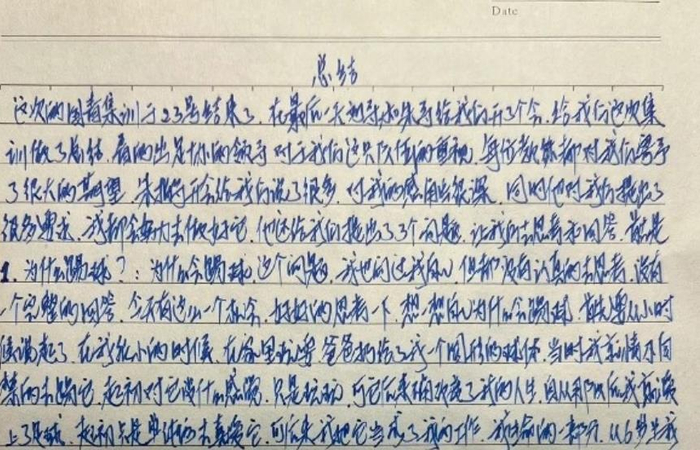 Date
总结
这次的国青集训于23号结束了,在最后一天领导和朱导给我们开了个会,给我们这次集
训做了总结,看的出足协的领导对于我们这只队伍的重视,每位教练都对我们寄予
了很大的期望,朱指导开会给我们说了很多,对我的感触也很深,同时他对我们提出了
很多要求,我都会努力去做好它,他还给我们提出了3个问题,让我们去思考和回答,首先是
1.为什么踢球?:为什么会踢球,这个问题,我也问过我自己,但都没有认真的去思考,没有
一个完整的回答,今天有这么一个机会,好好的思考一下,想一想自己为什么会踢球,首先要从小时
候说起了,在我很小的时候,在院里玩耍,爸爸扔给了我一个圆形的球体,当时我就情不自
禁的去踢它,起初对它没什么感觉,只是玩玩,可它后来却改变了我的人生,自从那以后我就踢
上了足球,起初只是单纯的去喜爱它,可后来我把它当成了我的工作,我生命的一部分,从6岁生我